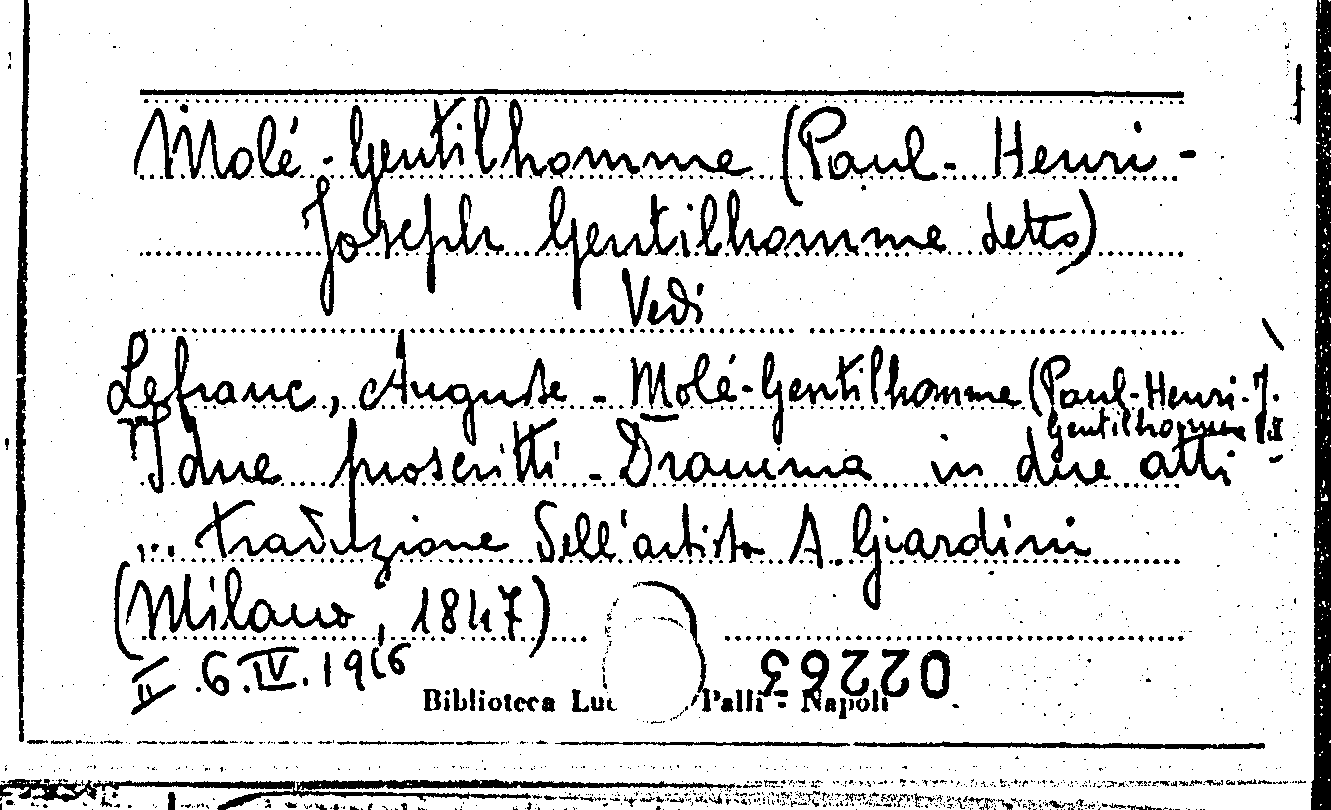 Molé-Gentilhomme (Paul-Henri-
Joseph Gentilhomme detto)
Vedi
Lefranc, Auguste - Molé-Gentilhomme (Paul-Henri-J.
Gentilhomme
I due proscritti - Dramma in due atti
... traduzione dell'artista A. Giardini
(Milano, 1847)
6.IV.19
02263
Biblioteca Palli - Napoli